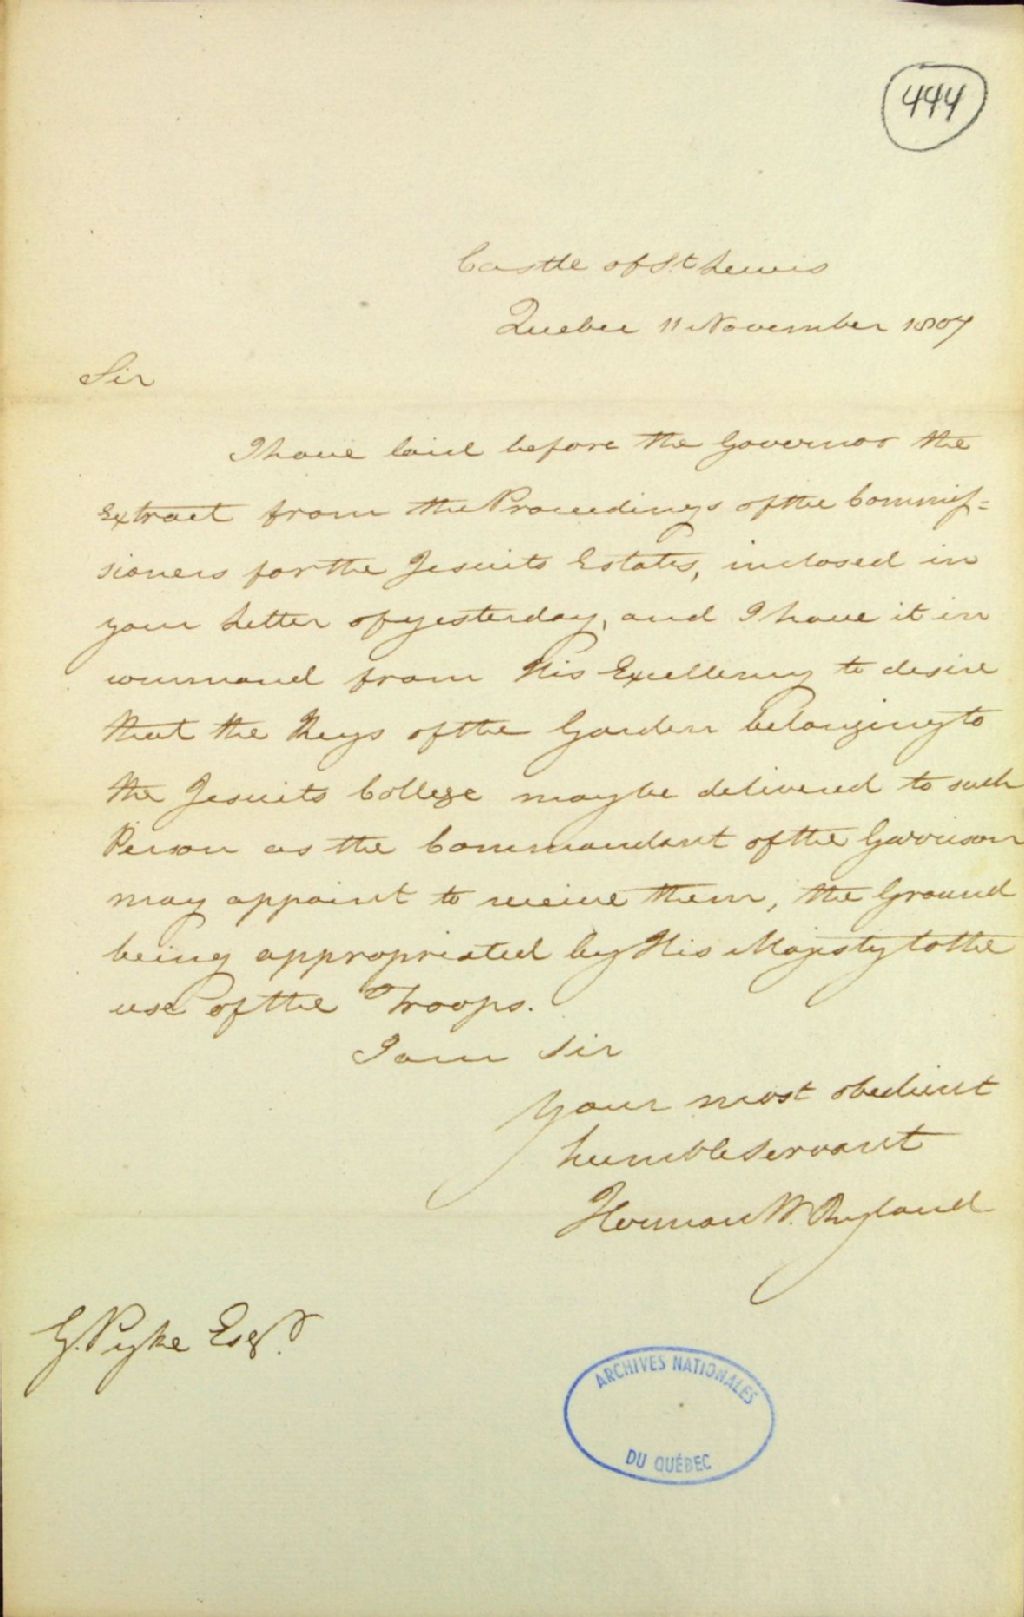 444
Castle of St Lewis
Quebec 11 November 1807
Sir
I have laid before the Governor the
Extract from the Proceedings of the Commis=
sioners for the Jesuits Estates, inclosed in
your Letter of yesterday, and I have it in
command from His Excellency to desire
that the Keys of the Garden belonging to
the Jesuits College may be delivered to such
Person as the Commandant of the Garrison
may appoint to receive them, the Ground
being appropriated by His Majesty to the
use of the Troops.
I am Sir
Your most obedient
humble Servant
Herman W. Ryland
G. Pyke Esqr.
ARCHIVES NATIONALES
DU QUÉBEC